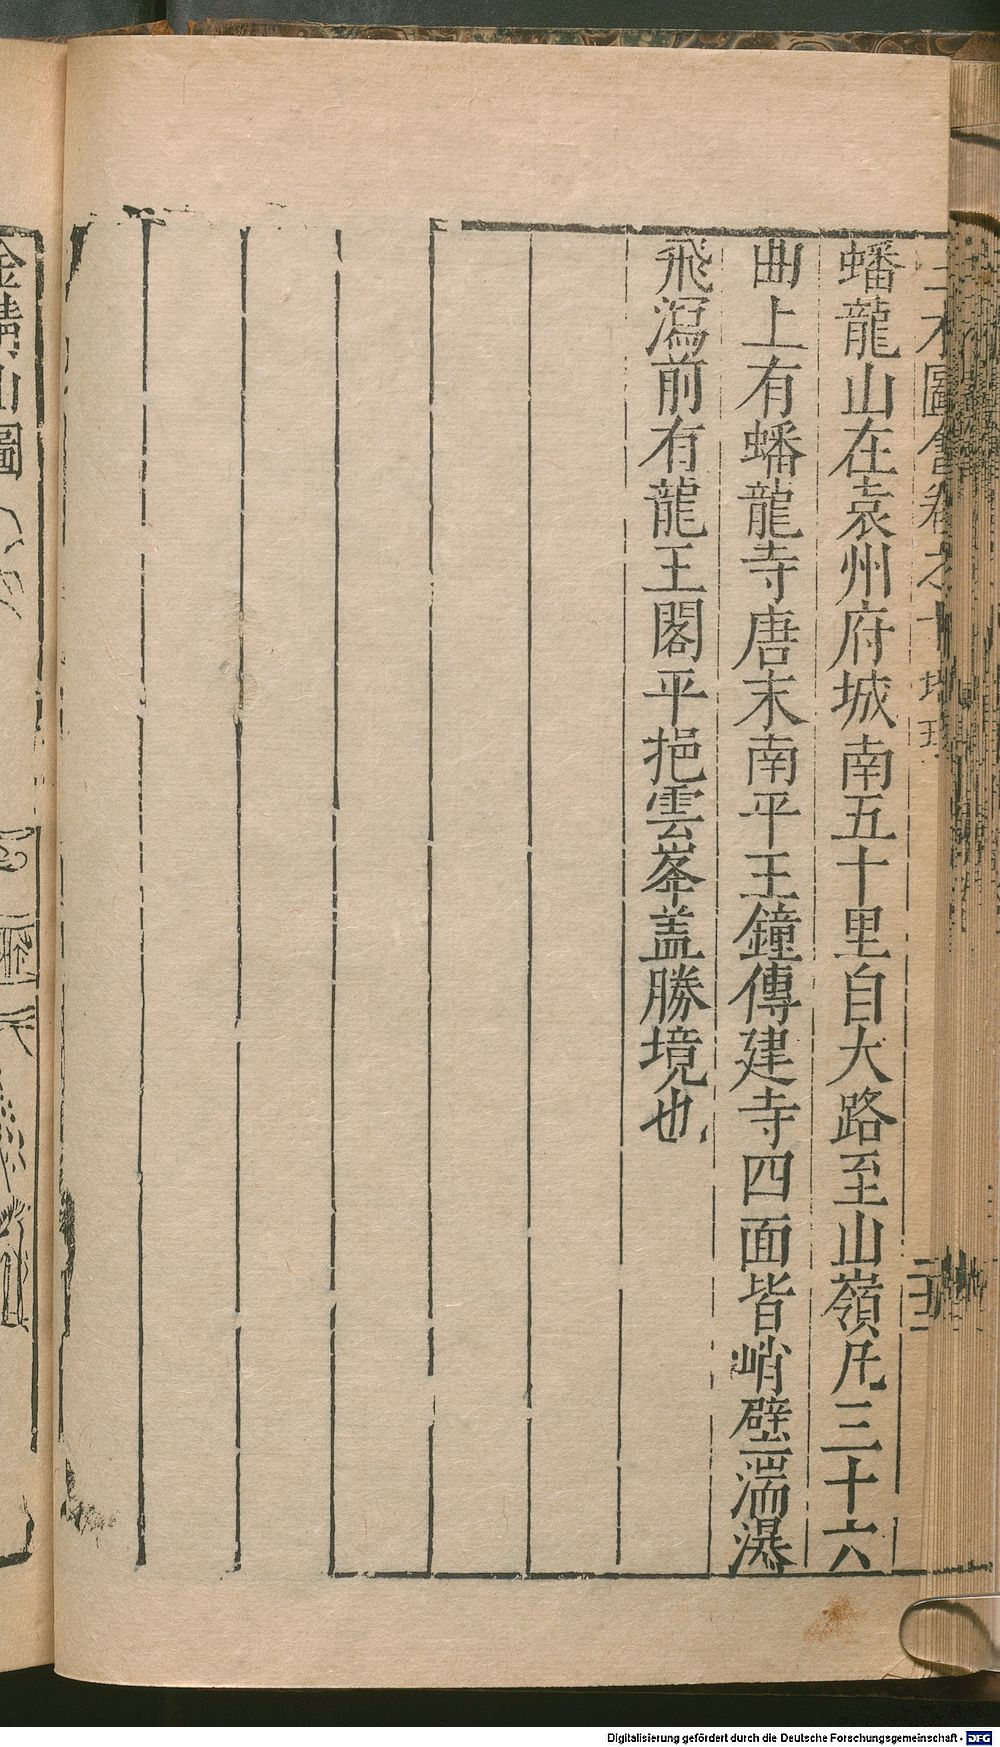 三才圖會卷之十地理
蟠龍山在袁州府城南五十里自大路至山嶺凡三十六
曲上有蟠龍寺唐末南平王鐘傳建寺四面皆峭壁湍瀑
飛瀉前有龍王閣平挹雲峯盖勝境也
金精山圖
Digitalisierung gefördert durch die Deutsche Forschungsgemeinschaft - DFG